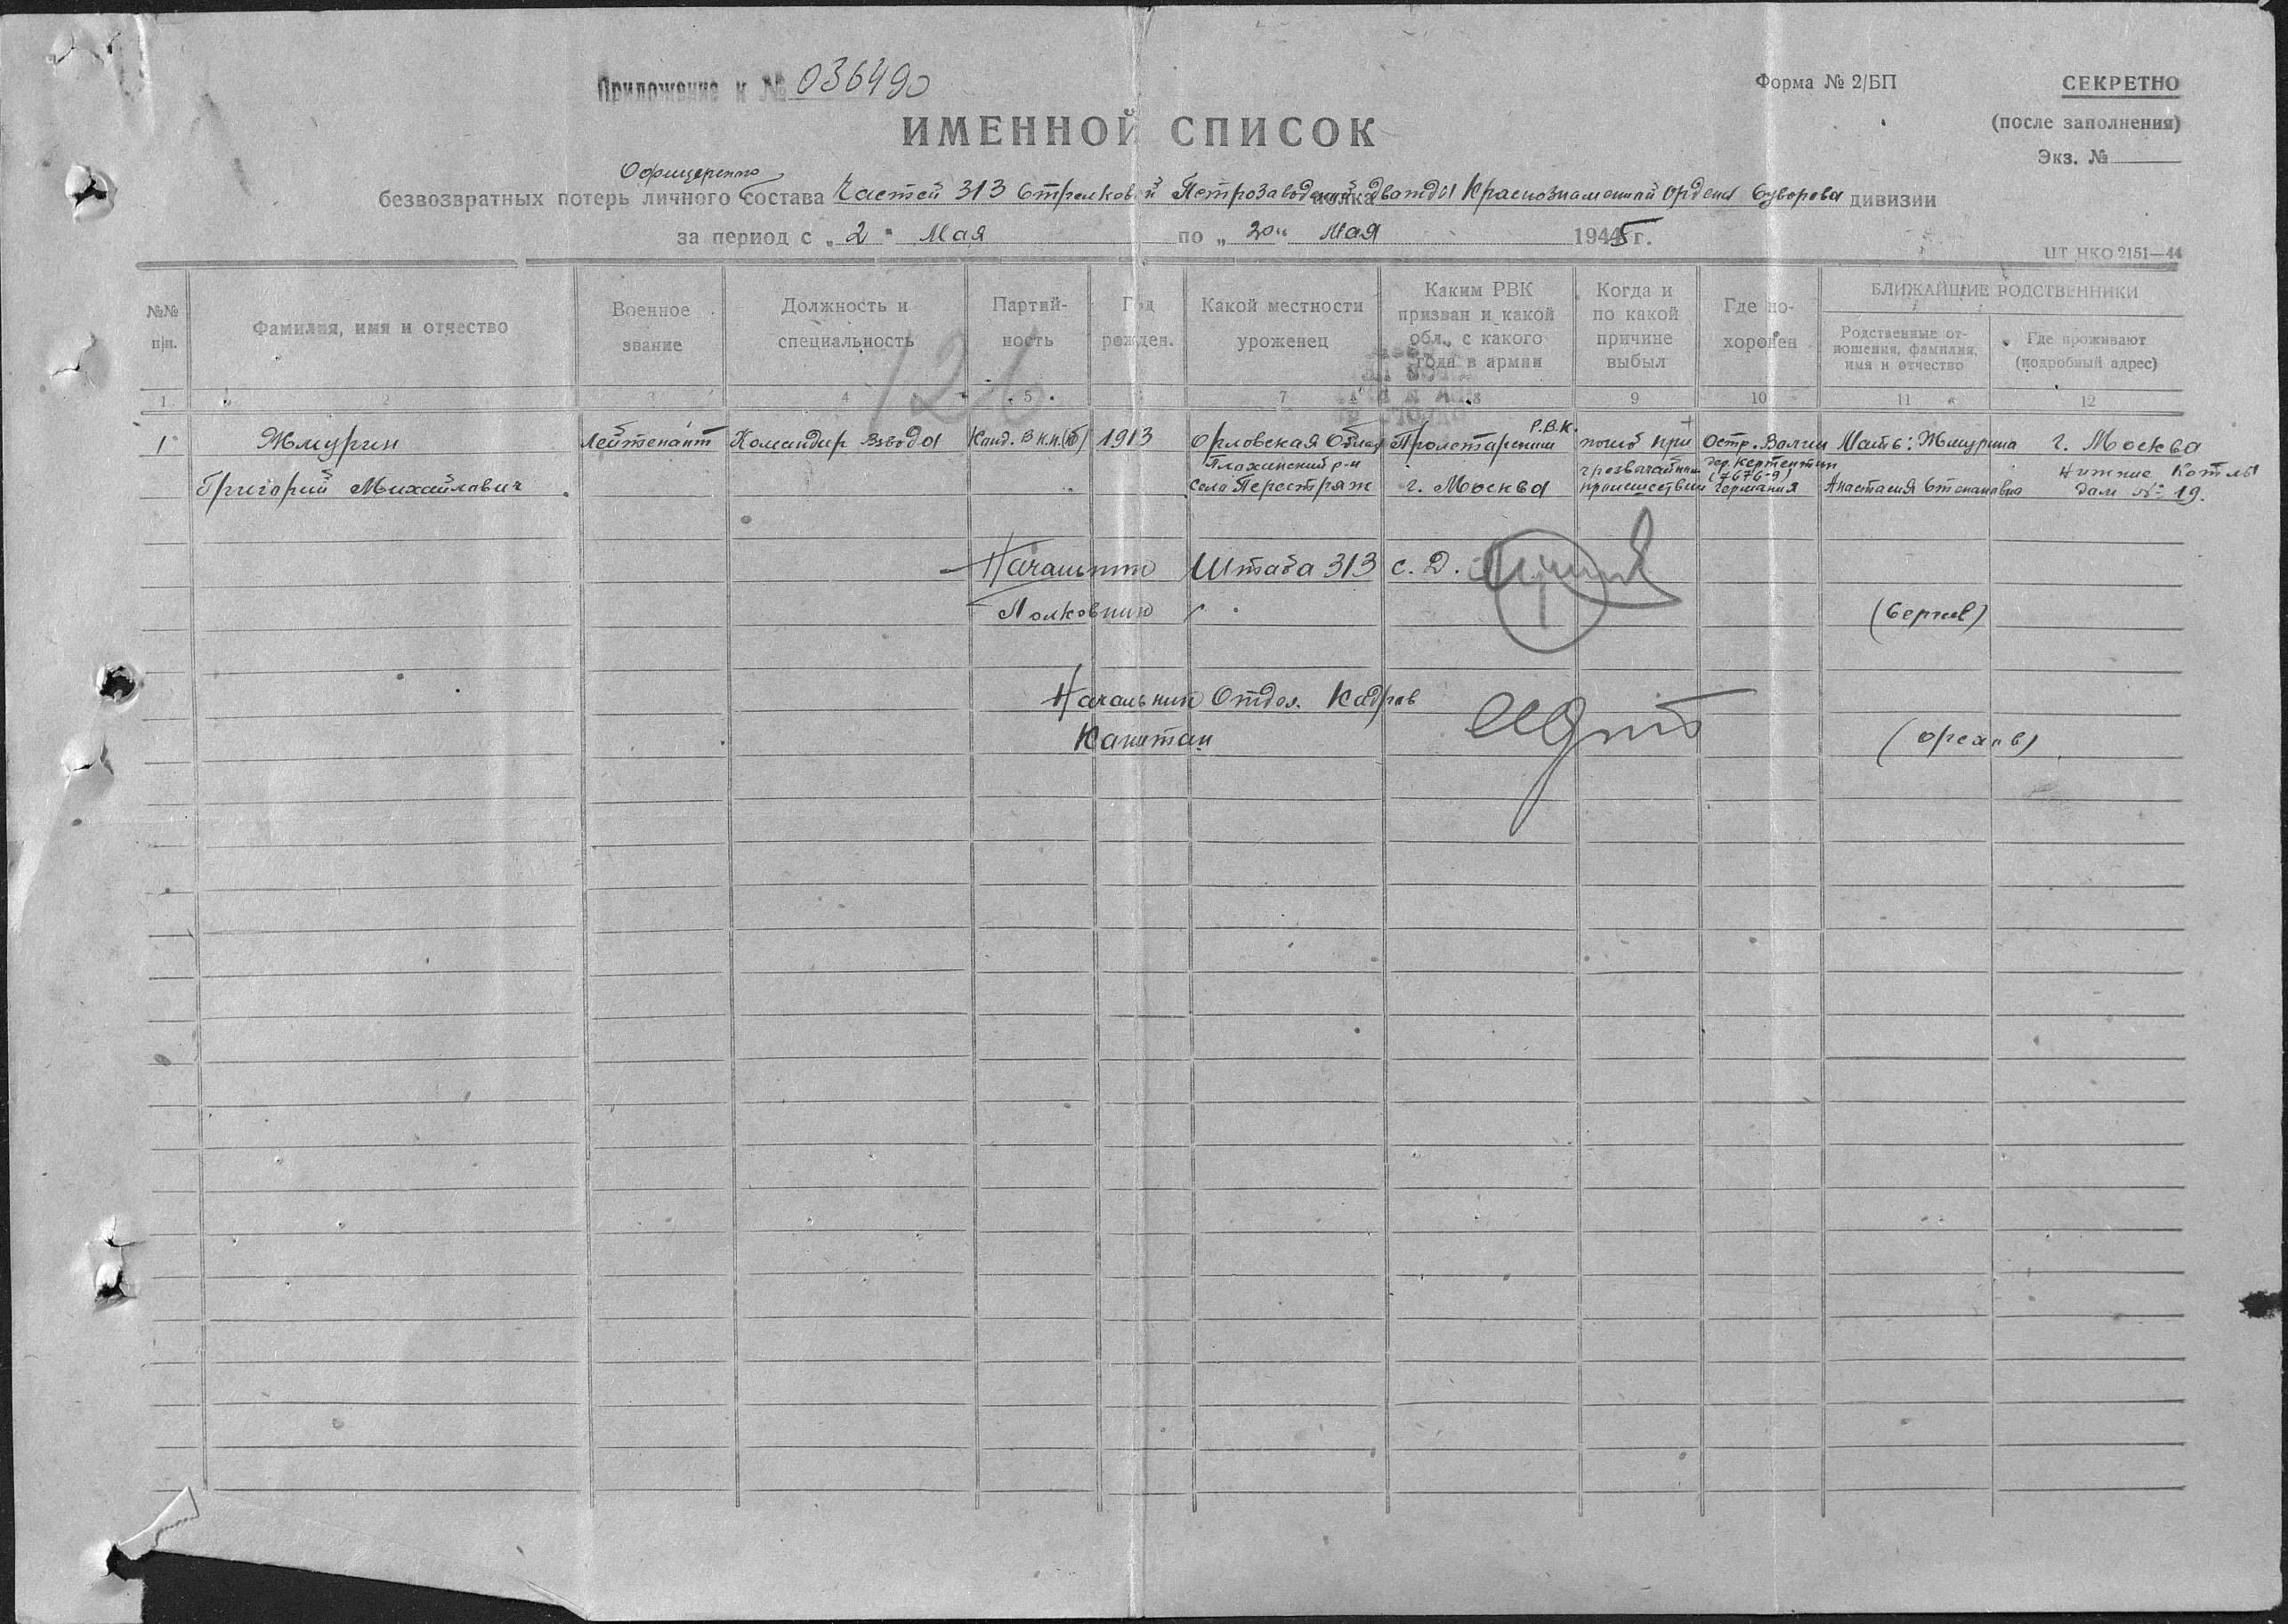 Приложение к № 036490
Форма № 2/БП
СЕКРЕТНО
(после заполнения)
Экз. №
ИМЕННОЙ СПИСОК
Офицерского
безвозвратных потерь личного состава Частей 313 Стрелковой Петрозаводской полка дважды Краснознаменной ордена Суворова дивизии
за период с „ 2 " Мая по „ 20 " Мая 1945 г.
ЦТ НКО 2151—44
№№ п/п.
Фамилия, имя и отчество
Военное звание
Должность и специальность
Партийность
Год рожден.
Какой местности уроженец
Каким РВК призван и какой обл., с какого года в армии
Когда и по какой причине выбыл
Где похоронен
БЛИЖАЙШИЕ РОДСТВЕННИКИ
Родственные отношения, фамилия, имя и отчество
Где проживают (подробный адрес)
126
1 2 3 4 5 7 8 9 10 11 12
1 Жмурин Лейтенант Командир взвода Канд. ВКП(б) 1913 Орловская Област Пролетарским Р.В.К. погиб при Остр. Валин Мать: Жмурина г. Москва
Плохинский р-н чрезвычайном дер. Кертентин Нижние Котлы
Григорий Михайлович село Перестряж г. Москва происшествии (7676-9) Германия Анастасия Степановна дом № 19.
Начальник Штаба 313 с. Д.
Полковник (Сергеев)
Начальник Отдел. Кадров
Капитан (Орехов)